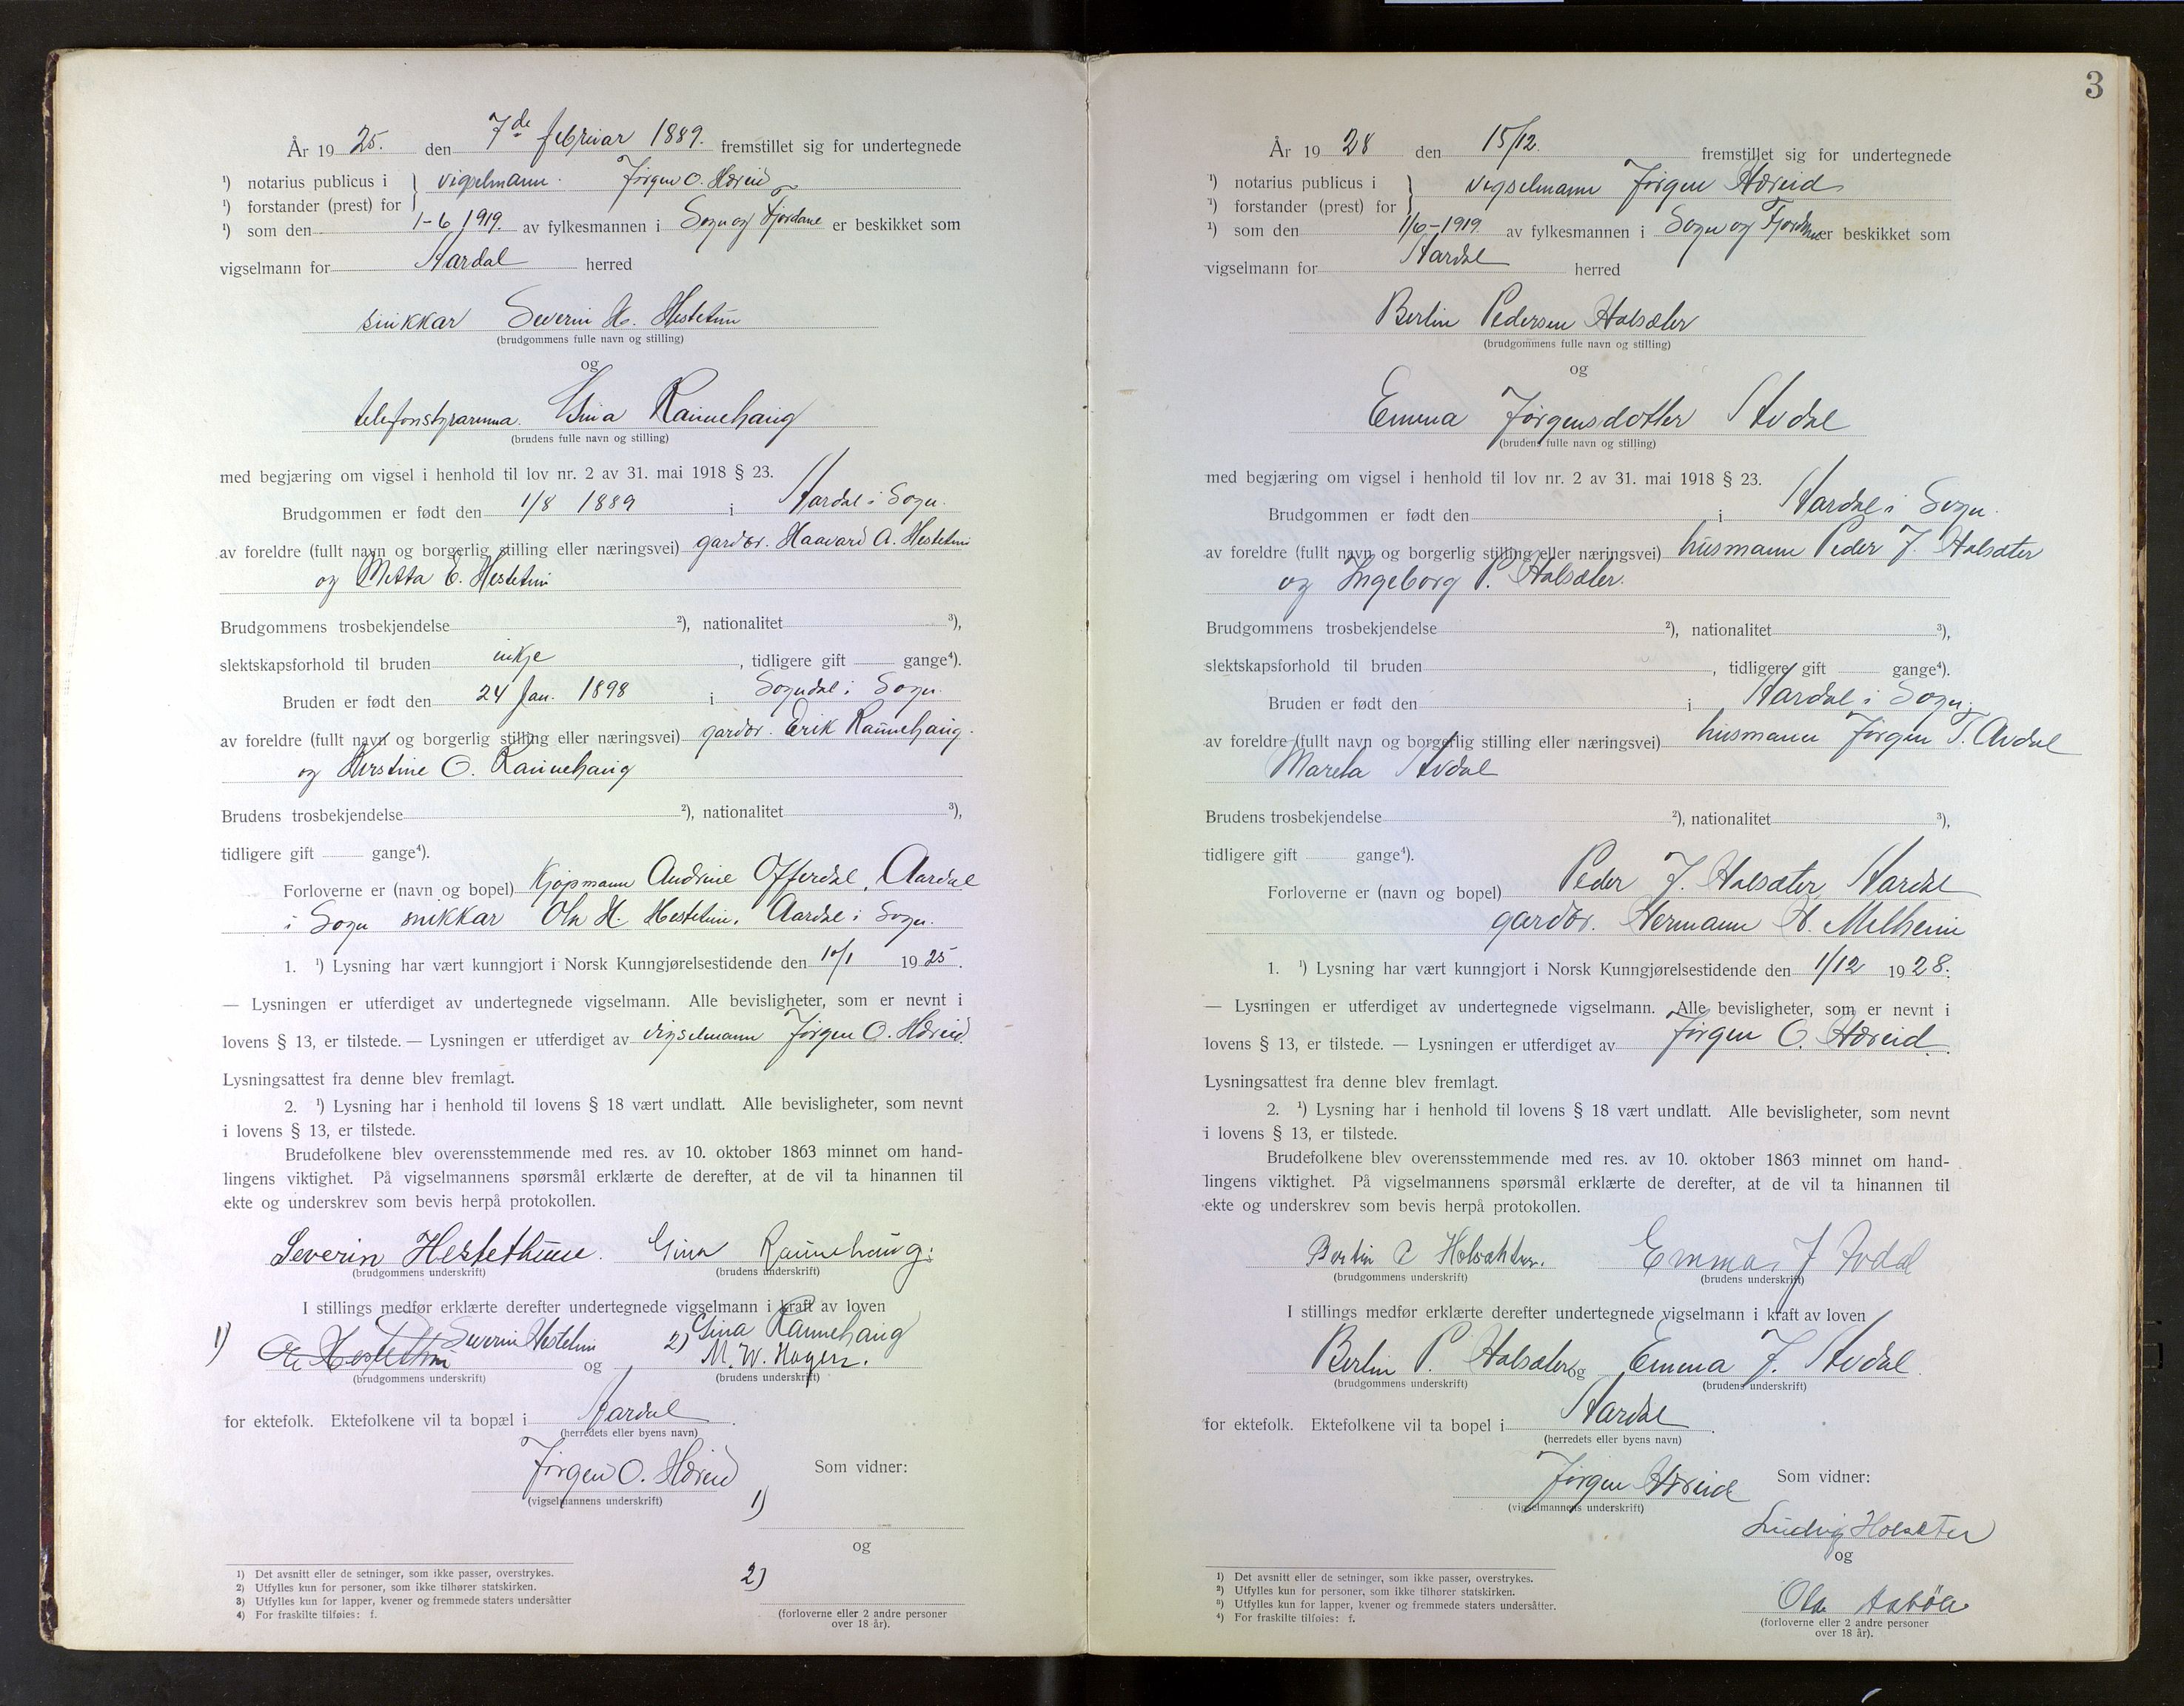 År 19 25. den 7de februar 1889. fremstillet sig for undertegnede
¹) notarius publicus i } vigselmann. Jørgen O. Hæreid
¹) forstander (prest) for
¹) som den 1-6 1919. av fylkesmannen i Sogn og Fjordane er beskikket som
vigselmann for Aardal herred
snikkar Severin H. Hestetun
(brudgommens fulle navn og stilling)
og
telefonstyrarinna. Gina Rannehaug
(brudens fulle navn og stilling)
med begjæring om vigsel i henhold til lov nr. 2 av 31. mai 1918 § 23.
Brudgommen er født den 1/8 1889 i Aardal i Sogn.
av foreldre (fullt navn og borgerlig stilling eller næringsvei) gardbr. Haavard A. Hestetun
og Metta E. Hestetun
Brudgommens trosbekjendelse ²), nationalitet ³),
slektskapsforhold til bruden inkje , tidligere gift gange⁴).
Bruden er født den 24 Jan. 1898 i Sogndal i Sogn.
av foreldre (fullt navn og borgerlig stilling eller næringsvei) gardbr. Erik Rannehaug.
og Kirstine O. Rannehaug
Brudens trosbekjendelse ²), nationalitet ³),
tidligere gift gange⁴).
Forloverne er (navn og bopel) Kjøpmann Andrine Offerdal, Aardal
i Sogn snikkar Ola H. Hestetun, Aardal i Sogn.
1. ¹) Lysning har vært kunngjort i Norsk Kunngjørelsestidende den 10/1 19 25.
— Lysningen er utferdiget av undertegnede vigselmann. Alle bevisligheter, som er nevnt i
lovens § 13, er tilstede. — Lysningen er utferdiget av vigselmann Jørgen O. Hæreid.
Lysningsattest fra denne blev fremlagt.
2. ¹) Lysning har i henhold til lovens § 18 vært undlatt. Alle bevisligheter, som nevnt
i lovens § 13, er tilstede.
Brudefolkene blev overensstemmende med res. av 10. oktober 1863 minnet om hand-
lingens viktighet. På vigselmannens spørsmål erklærte de derefter, at de vil ta hinannen til
ekte og underskrev som bevis herpå protokollen.
Severin Hestethune. Gina Rannehaug.
(brudgommens underskrift) (brudens underskrift)
I stillings medfør erklærte derefter undertegnede vigselmann i kraft av loven
1) Severin Hestetun 2) Gina Rannehaug
Hestethun og M. W. Hagen.
(brudgommens underskrift) (brudens underskrift)
for ektefolk. Ektefolkene vil ta bopæl i Aardal .
(herredets eller byens navn)
Jørgen O. Hæreid Som vidner:
(vigselmannens underskrift) 1)
og
2)
(forloverne eller 2 andre personer
over 18 år).
1) Det avsnitt eller de setninger, som ikke passer, overstrykes.
2) Utfylles kun for personer, som ikke tilhører statskirken.
3) Utfylles kun for lapper, kvener og fremmede staters undersåtter
4) For fraskilte tilføies: f.
3
År 19 28 den 15/12. fremstillet sig for undertegnede
¹) notarius publicus i } vigselmann Jørgen Hæreid
¹) forstander (prest) for
¹) som den 1/6-1919 av fylkesmannen i Sogn og Fjordane er beskikket som
vigselmann for Aardal herred
Bertin Pedersen Holsæter
(brudgommens fulle navn og stilling)
og
Emma Jørgensdotter Avdal
(brudens fulle navn og stilling)
med begjæring om vigsel i henhold til lov nr. 2 av 31. mai 1918 § 23.
Brudgommen er født den i Aardal i Sogn.
av foreldre (fullt navn og borgerlig stilling eller næringsvei) husmann Peder J. Holsæter
og Ingeborg P. Holsæter.
Brudgommens trosbekjendelse ²), nationalitet ³),
slektskapsforhold til bruden , tidligere gift gange⁴).
Bruden er født den i Aardal i Sogn.
av foreldre (fullt navn og borgerlig stilling eller næringsvei) husmann Jørgen T. Avdal
Mareta Avdal
Brudens trosbekjendelse ²), nationalitet ³),
tidligere gift gange⁴).
Forloverne er (navn og bopel) Peder J. Holsæter, Aardal
gardbr. Hermann H. Melheim
1. ¹) Lysning har vært kunngjort i Norsk Kunngjørelsestidende den 1/12 19 28.
— Lysningen er utferdiget av undertegnede vigselmann. Alle bevisligheter, som er nevnt i
lovens § 13, er tilstede. — Lysningen er utferdiget av Jørgen O. Hæreid.
Lysningsattest fra denne blev fremlagt.
2. ¹) Lysning har i henhold til lovens § 18 vært undlatt. Alle bevisligheter, som nevnt
i lovens § 13, er tilstede.
Brudefolkene blev overensstemmende med res. av 10. oktober 1863 minnet om hand-
lingens viktighet. På vigselmannens spørsmål erklærte de derefter, at de vil ta hinannen til
ekte og underskrev som bevis herpå protokollen.
Bertin P Holsæter. Emma J Avdal
(brudgommens underskrift) (brudens underskrift)
I stillings medfør erklærte derefter undertegnede vigselmann i kraft av loven
Bertin P. Holsæter og Emma J. Avdal.
(brudgommens underskrift) (brudens underskrift)
for ektefolk. Ektefolkene vil ta bopel i Aardal .
(herredets eller byens navn)
Jørgen Hæreid Som vidner:
(vigselmannens underskrift)
Ludvig Holsæter
og
Ola Asbøle
(forloverne eller 2 andre personer
over 18 år).
¹) Det avsnitt eller de setninger, som ikke passer, overstrykes.
²) Utfylles kun for personer, som ikke tilhører statskirken.
³) Utfylles kun for lapper, kvener og fremmede staters undersåtter.
⁴) For fraskilte tilføies: f.